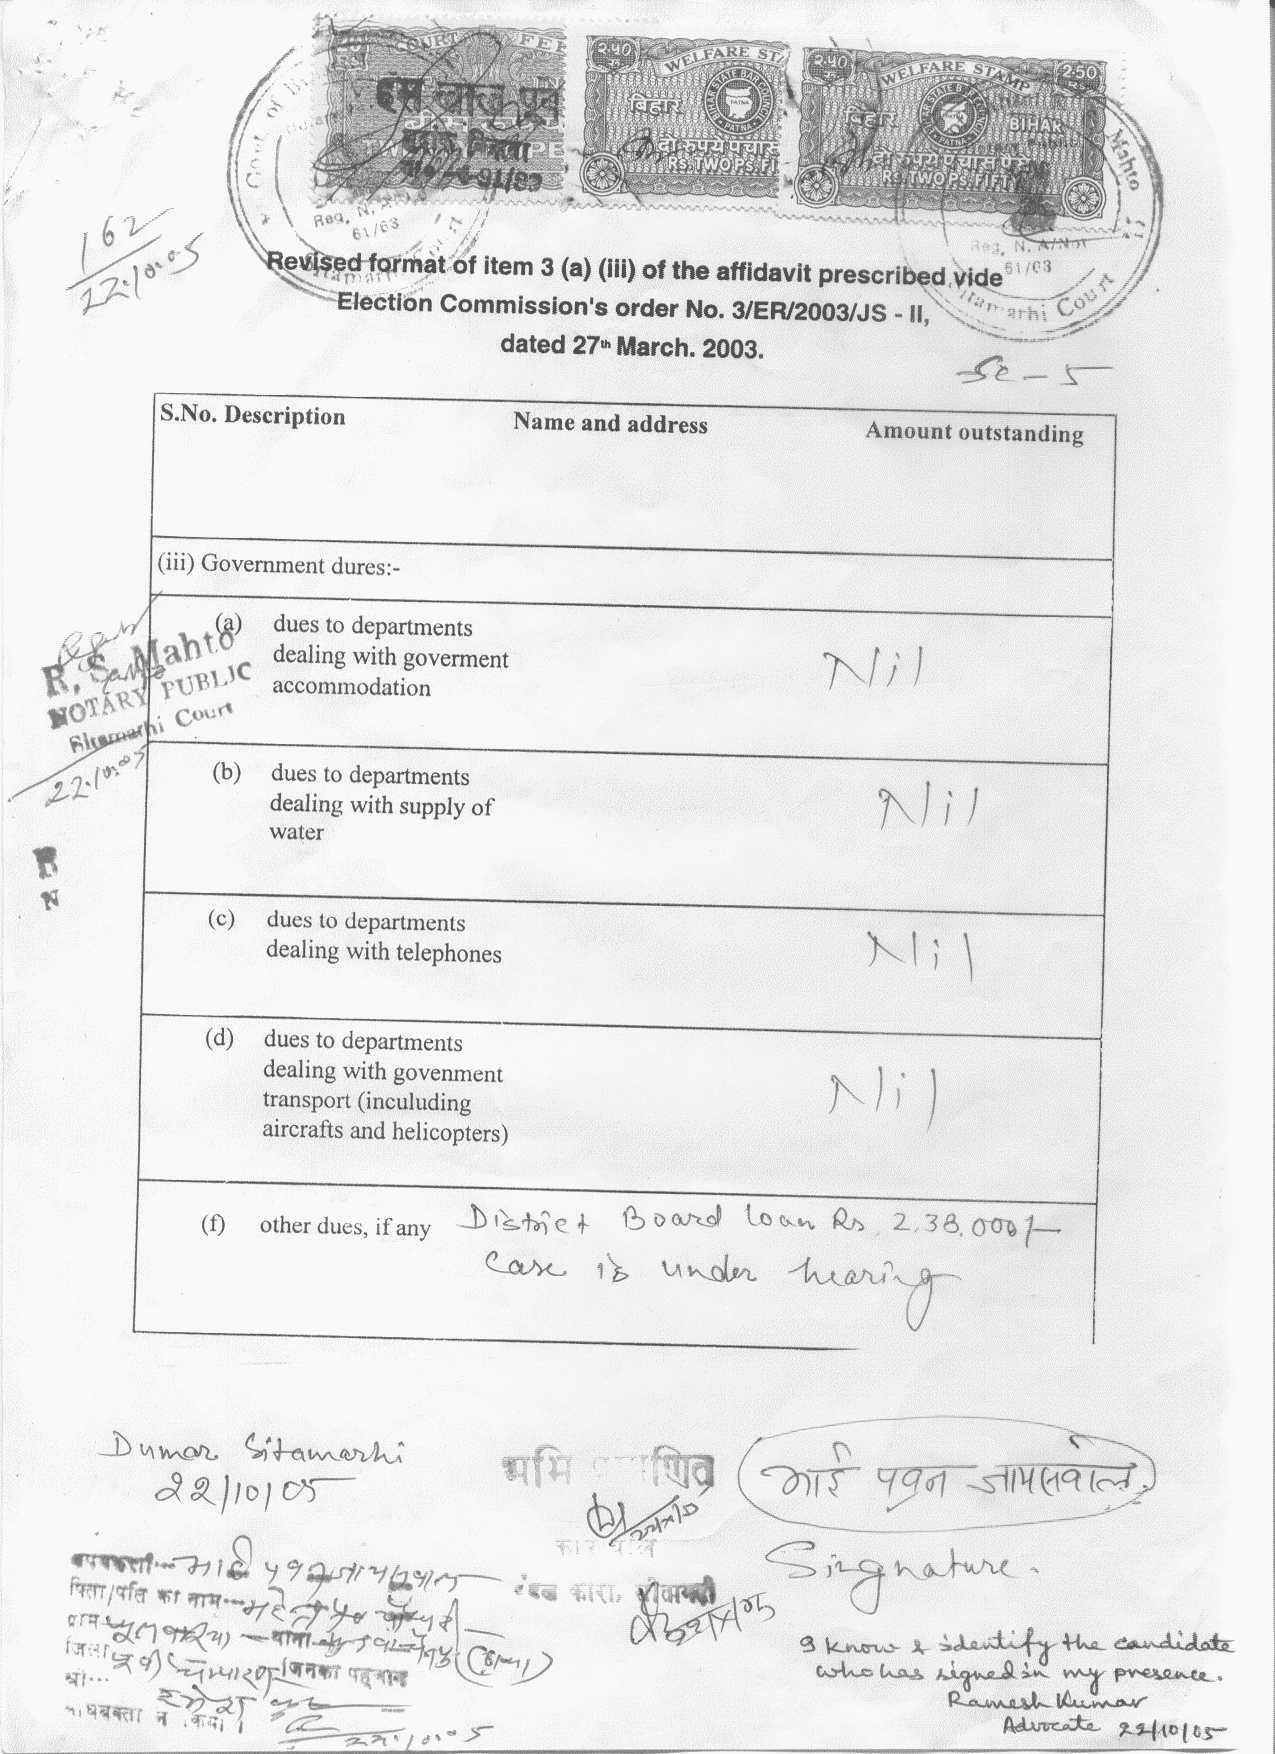 COURT FEE
२.५० WELFARE STA
बिहार
BIHAR STATE BAR COUNCIL PATNA
दो रुपये पचास
RS. TWO PS. FI
२.५० WELFARE STAMP 2.50
बिहार BIHAR
दो रुपये पचास पैसे
RS. TWO PS. FIFTY
Govt. of
Reg. N.
61/63
Mahto
Reg. N.
61/63
Sitamarhi Court
162
22.10.05
Revised format of item 3 (a) (iii) of the affidavit prescribed vide
Election Commission's order No. 3/ER/2003/JS - II,
dated 27th March. 2003.
S.No. Description Name and address Amount outstanding
(iii) Government dures:-
(a) dues to departments
dealing with goverment
accommodation
Nil
R. S. Mahto
NOTARY PUBLIC
Sitamarhi Court
22.10.05
(b) dues to departments
dealing with supply of
water
Nil
(c) dues to departments
dealing with telephones
Nil
(d) dues to departments
dealing with govenment
transport (inculuding
aircrafts and helicopters)
Nil
(f) other dues, if any District Board loan Rs. 2.38.000/-
Case is under hearing
Dumar Sitamarhi
22/10/05
भाई पवन जायसवाल
Singnature.
पिता/पति का नाम
ग्राम थाना
जिला जिनका पहचान
श्री...
22.10.05
I know & identify the candidate
who has signed in my presence.
Ramesh Kumar
Advocate 22/10/05